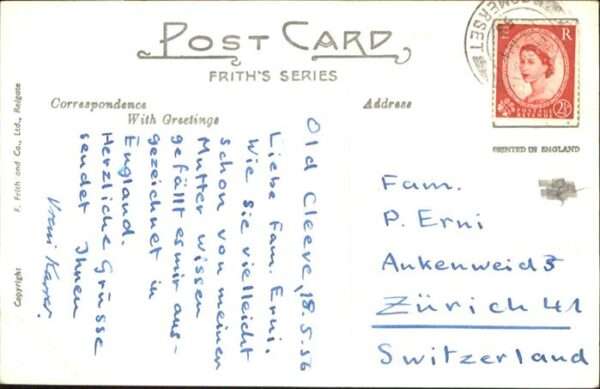 POST CARD
FRITH'S SERIES
Correspondence
With Greetings
Address
SOMERSET
R
2½
POSTAGE REVENUE
PRINTED IN ENGLAND
Old Cleeve, 18.5.56
Liebe Fam. Erni.
Wie sie vielleicht
schon von meiner
Mutter wissen
gefällt es mir aus-
gezeichnet in
England.
Herzliche Grüsse
sendet Ihnen
Vreni Karrer.
Fam.
P. Erni
Ankenweid 3
Zürich 41
Switzerland
Copyright F. Frith and Co., Ltd., Reigate